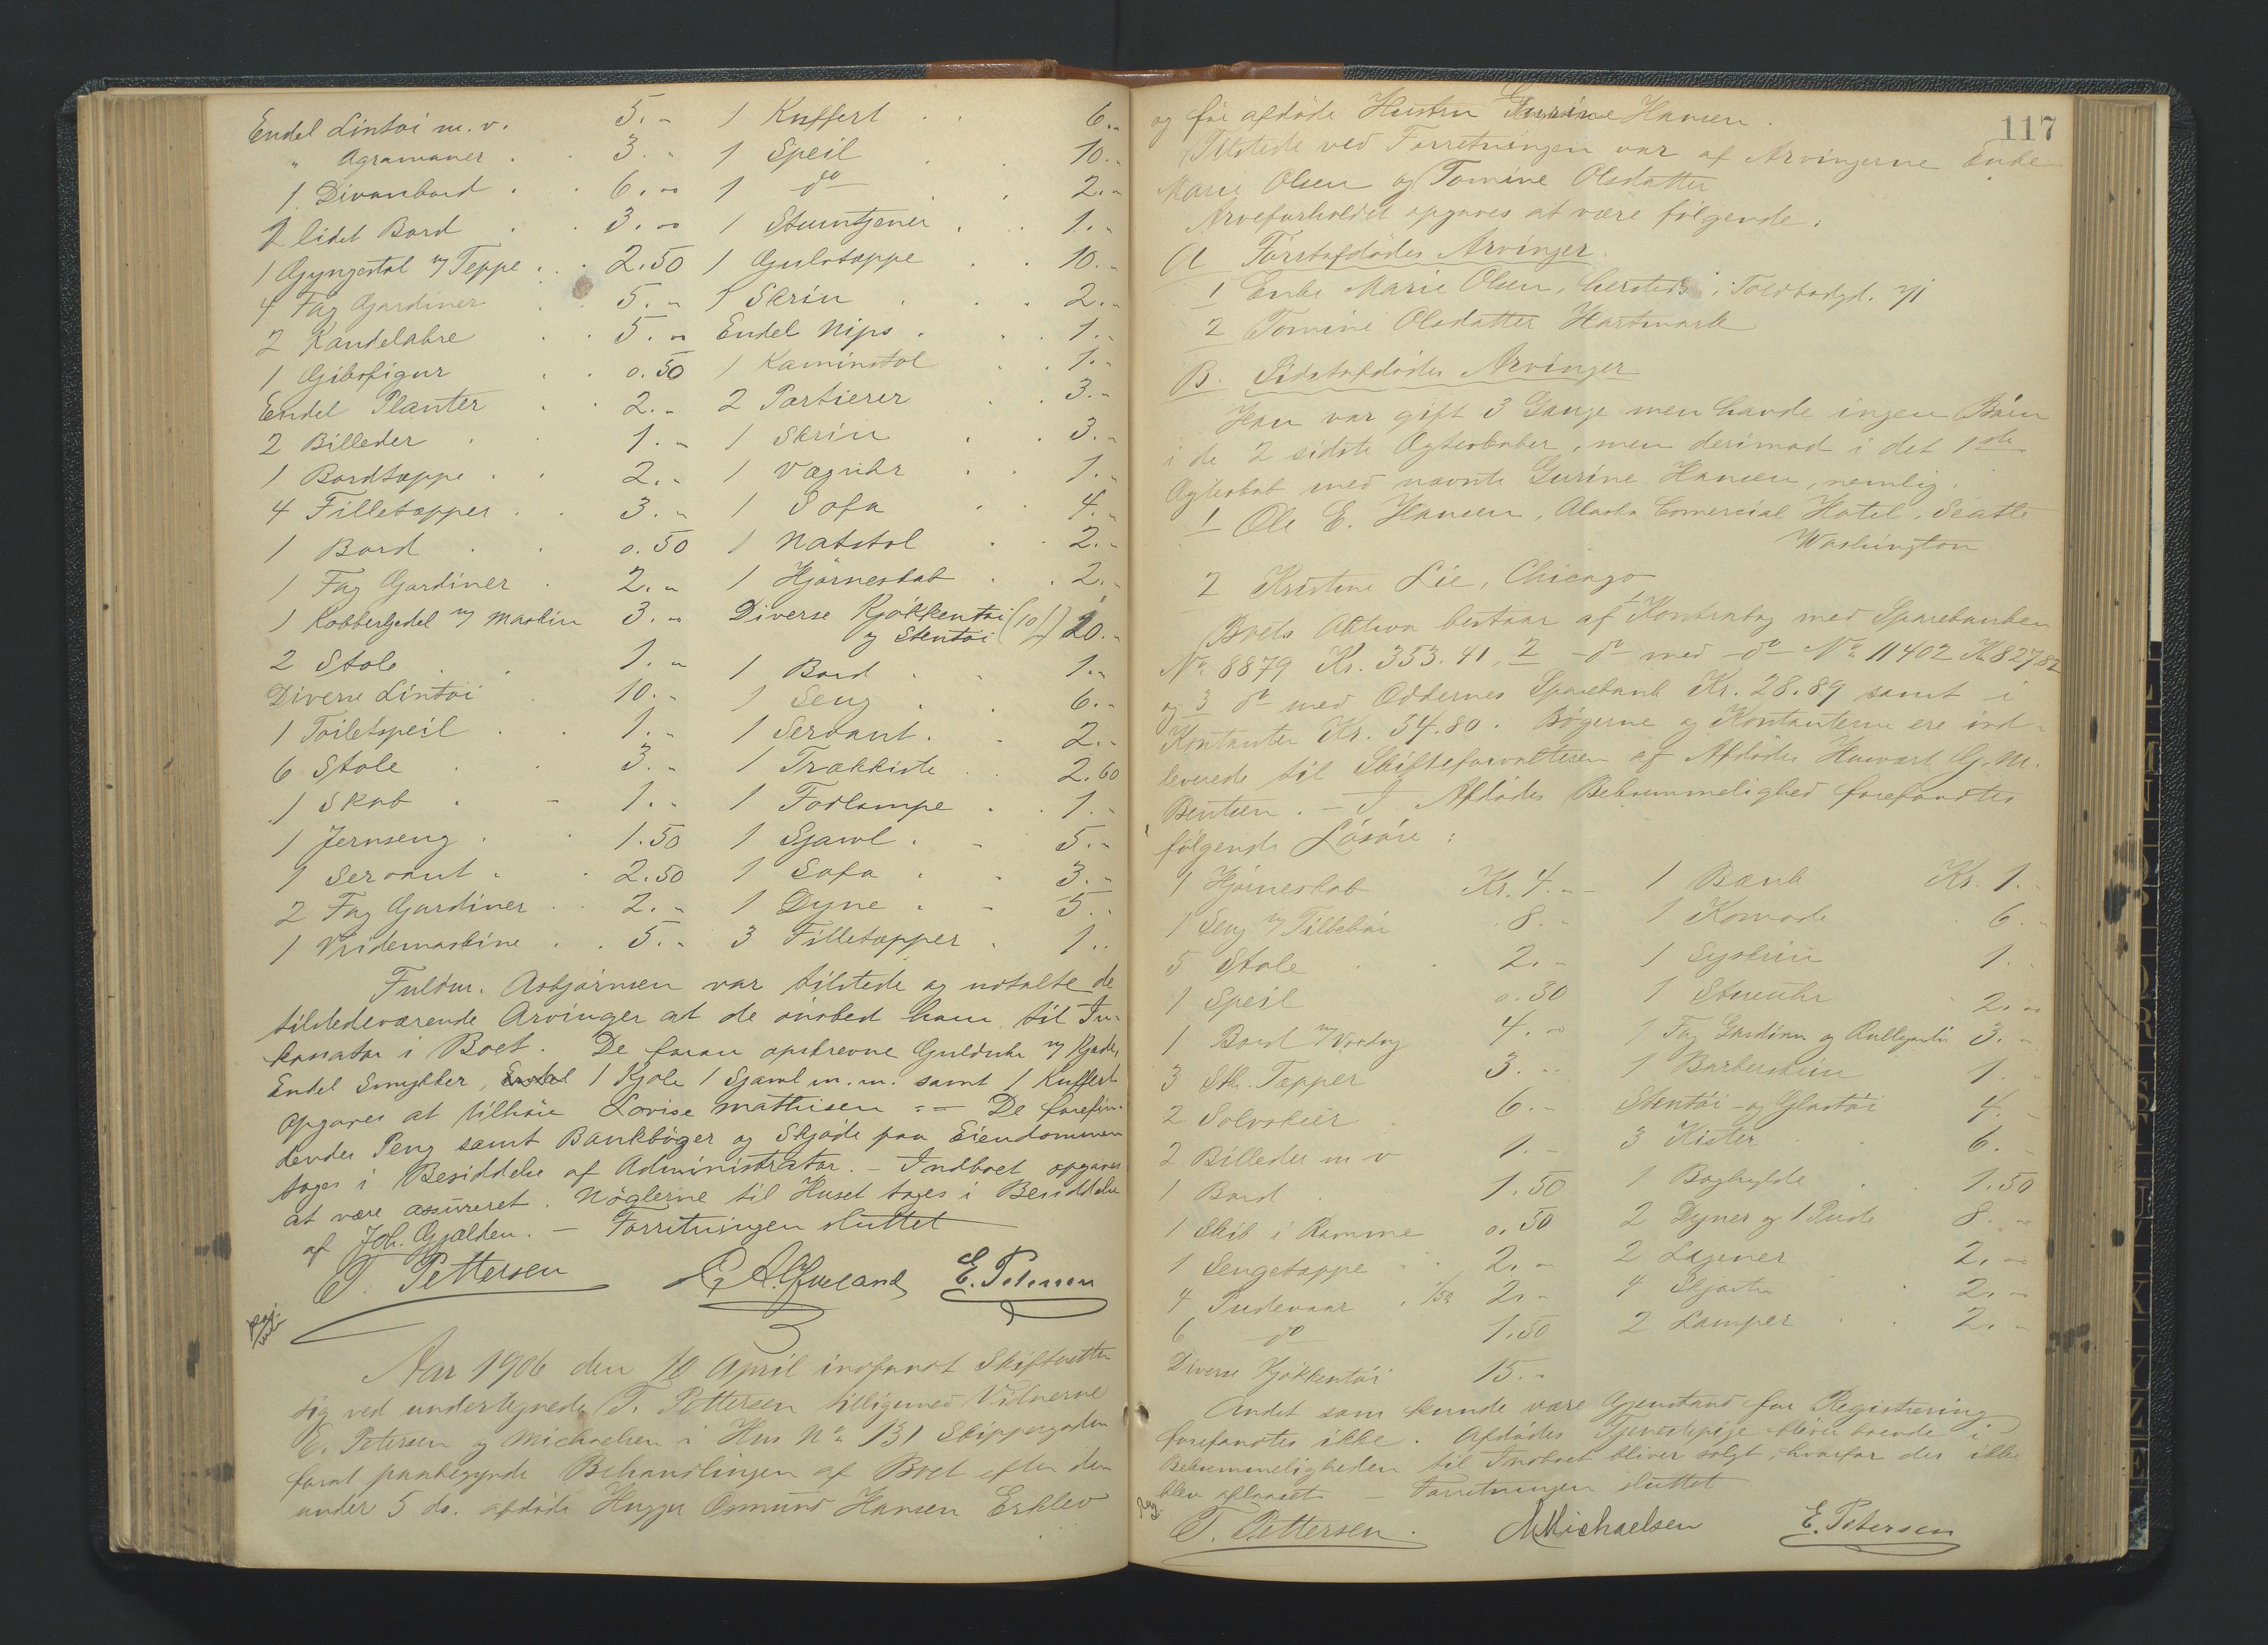 Endel Lintøi m. v. 5.- 1 Kuffert 6.-
" Agramaner 3.- 1 Speil 10.-
1 Divanbord 6.- 1 do 2.-
1 lidet Bord 3.- 1 Stumtjener 1.-
1 Gyngestol m/ Teppe 2.50 1 Gulvtæppe 10.-
4 Fag Gardiner 5.- 1 Skrin 2.-
2 Kandelabre 5.- Endel Nips 1.-
1 Gibsfigur 0.50 1 Kaminstol 1.-
Endel Planter 2.- 2 Portierer 3.-
2 Billeder 1.- 1 Skrin 3.-
1 Bordtæppe 2.- 1 Væguhr 1.-
4 Filletæpper 3.- 1 Sofa 4.-
1 Bord 0.50 1 Natstol 2.-
1 Fag Gardiner 2.- 1 Hjørneskab 2.-
1 Kobberkjedel m/ Maskin 3.- Diverse Kjøkkentøi
og Stentøi (10/) 20.-
2 Stole 1.- 1 Bord 1.-
Diverse Lintøi 10.- 1 Seng 6.-
1 Toiletspeil 1.- 1 Servant 2.-
6 Stole 3.- 1 Trækkiste 2.60
1 Skab 1.- 1 Todlampe 1.-
1 Jernseng 1.50 1 Sjawl 5.-
1 Servant 2.50 1 Sofa 3.-
2 Fag Gardiner 2.- 1 Dyne 5.-
1 Vridemaskine 5.- 3 Filletæpper 1.-
Fuldm. Asbjørnsen var tilstede og udtalte de
tilstedeværende Arvinger at de ønsked ham til In-
kasator i Boet. De foran opskrevne Gulduhr m/ Kjede,
Endel Smykker, 1 Kjole 1 Sjawl m.m. samt 1 Kuffert
opgaves at tilhøre Lovise Mathisen =- De forefin-
dendes Peng samt Bankbøger og Skjøde paa Eiendommen
tages i Besiddelse af Administrator. - Indboet opgaves
at være assureret. Nøglerne til Huset tages i Besiddelse
af Joh. Gjelden. - Forretningen sluttet
T. Pettersen E. Petersen
3
Aar 1906 den 10 April indfandt Skifteretten
sig ved undertegnede T. Pettersen tilligemed Vidnerne
E. Petersen og Michaelsen i Hus No 131 Skippergaden
forat paabegynde Behandlingen af Boet efter den
under 5 ds. afdøde Osmund Hansen Erklev
117
og før afdøde Hustru Gurine Hansen.
Tilstede ved Forretningen var af Arvingerne Enke
Marie Olsen og Tomine Olsdatter
Arveforholdet opgaves at være følgende:
A Førstafdødes Arvinger.
1 Enke Marie Olsen, hersteds, Toldbodgd. 71
2 Tomine Olsdatter Hartmark
B. Sidstafdødes Arvinger
Han var gift 3 Gange men havde ingen Børn
i de 2 sidste Ægteskaber, men derimod i det 1ste
Ægteskab med nævnte Gurine Hansen, nemlig.
1 Ole E. Hansen, Alaska Comercial Hotel, Seatle
Washington
2 Kristine Lie, Chicago
Boets Aktiva bestaar af 1 Kontrabog med Sparebanken
No 8879 Kr. 353.41, 2 - do med - do No 11402 Kr 827.82
og 3 do med Oddernes Sparebank Kr. 28.89 samt i
Kontanter Kr. 34.80. Bøgerne og Kontanterne ere ind-
leverede til Skifteforvaltesen af Afdødes Huusvært G. M.
Bentsen. - I Afdødes Bekvemmelighed forefandtes
følgende Løsøre:
1 Hjørneskab Kr. 4.- 1 Bænk Kr. 1.-
1 Seng m/ Tilbehør 8.- 1 Komode 6.-
5 Stole 2.- 1 Syskrin 1.-
1 Speil 0.30 1 Stueuhr 2.-
1 Bord m/ Voxdug 4.- 1 Fag Gardiner og Rullegardin 3.-
3 Stk. Tæpper 3.- 1 Barberskrin 1.-
2 Solvskeer 6.- Stentøi- og Glastøi 4.-
2 Billeder m v 1.- 3 Kister 6.-
1 Bord 1.50 1 Boghylde 1.50
1 Skib i Ramme 0.50 2 Dyner og 1 Pude 8.-
1 Sengetæppe 2.- 2 Lagener 2.-
4 Pudevaar 2.- 4 Skjorter 2.-
6 do 1.50 2 Lamper 2.-
Diverse Kjøkkentøi 15.-
Andet som kunde være Gjenstand for Registrering
forefandtes ikke. Afdødes Tjenestepige bliver boende i
Bekvemmeligheden til Indboet bliver solgt, hvorfor der ikke
blev aflaaset. - Forretningen sluttet
T. Pettersen. Michaelsen E. Petersen